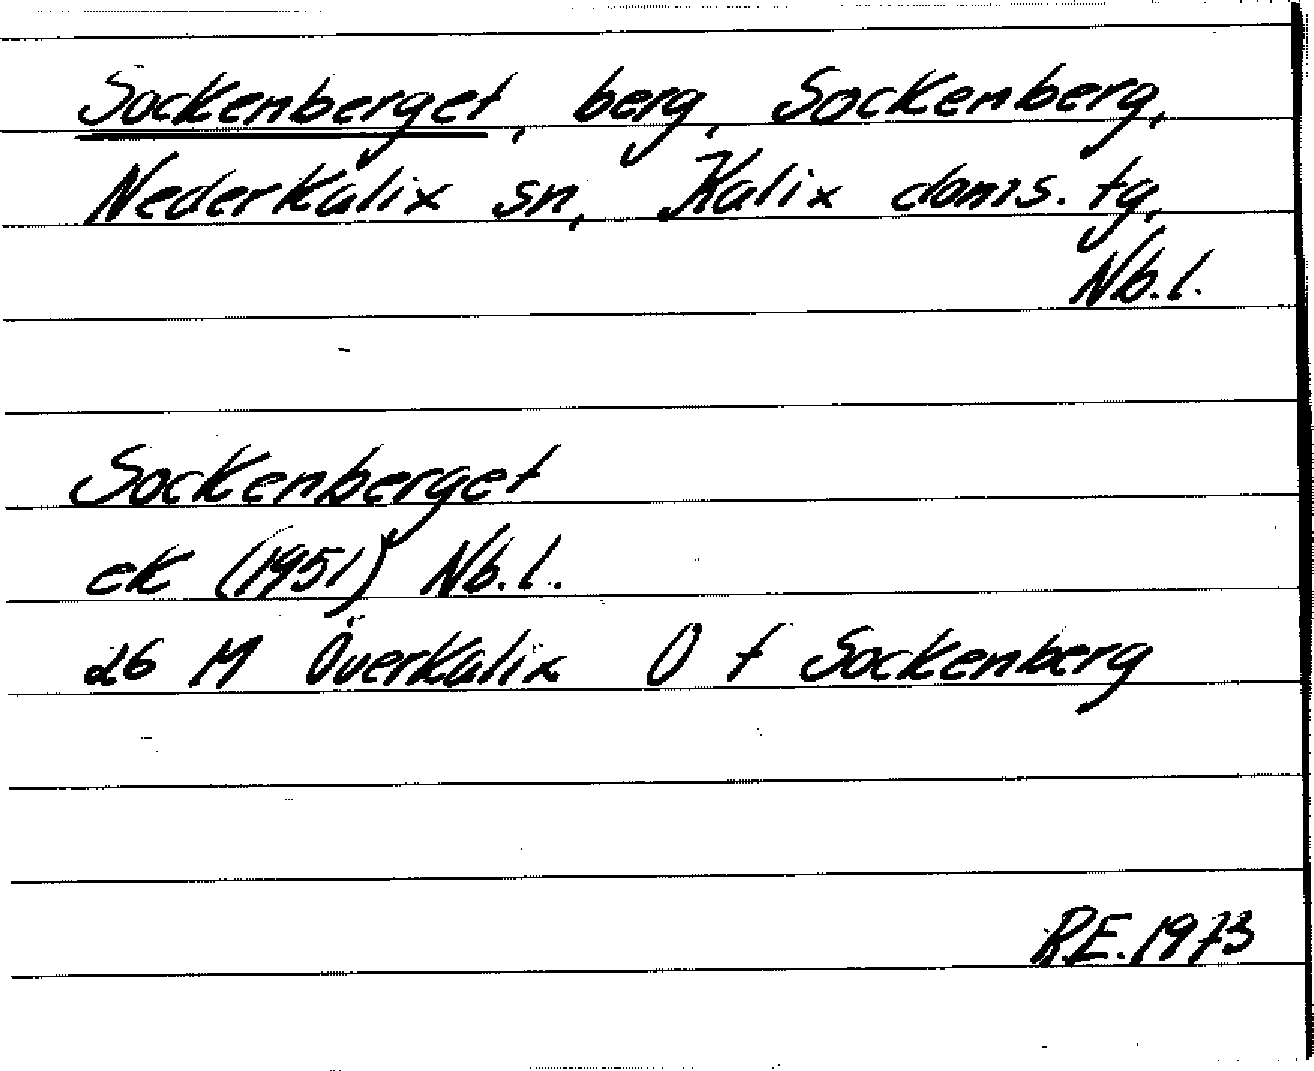 Sockenberget, berg, Sockenberg,
Nederkalix sn, Kalix doms. tg,
Nb.l.
Sockenberget
ek (1951) Nb.l.
26 M Överkalix O t Sockenberg
R.E. 1973